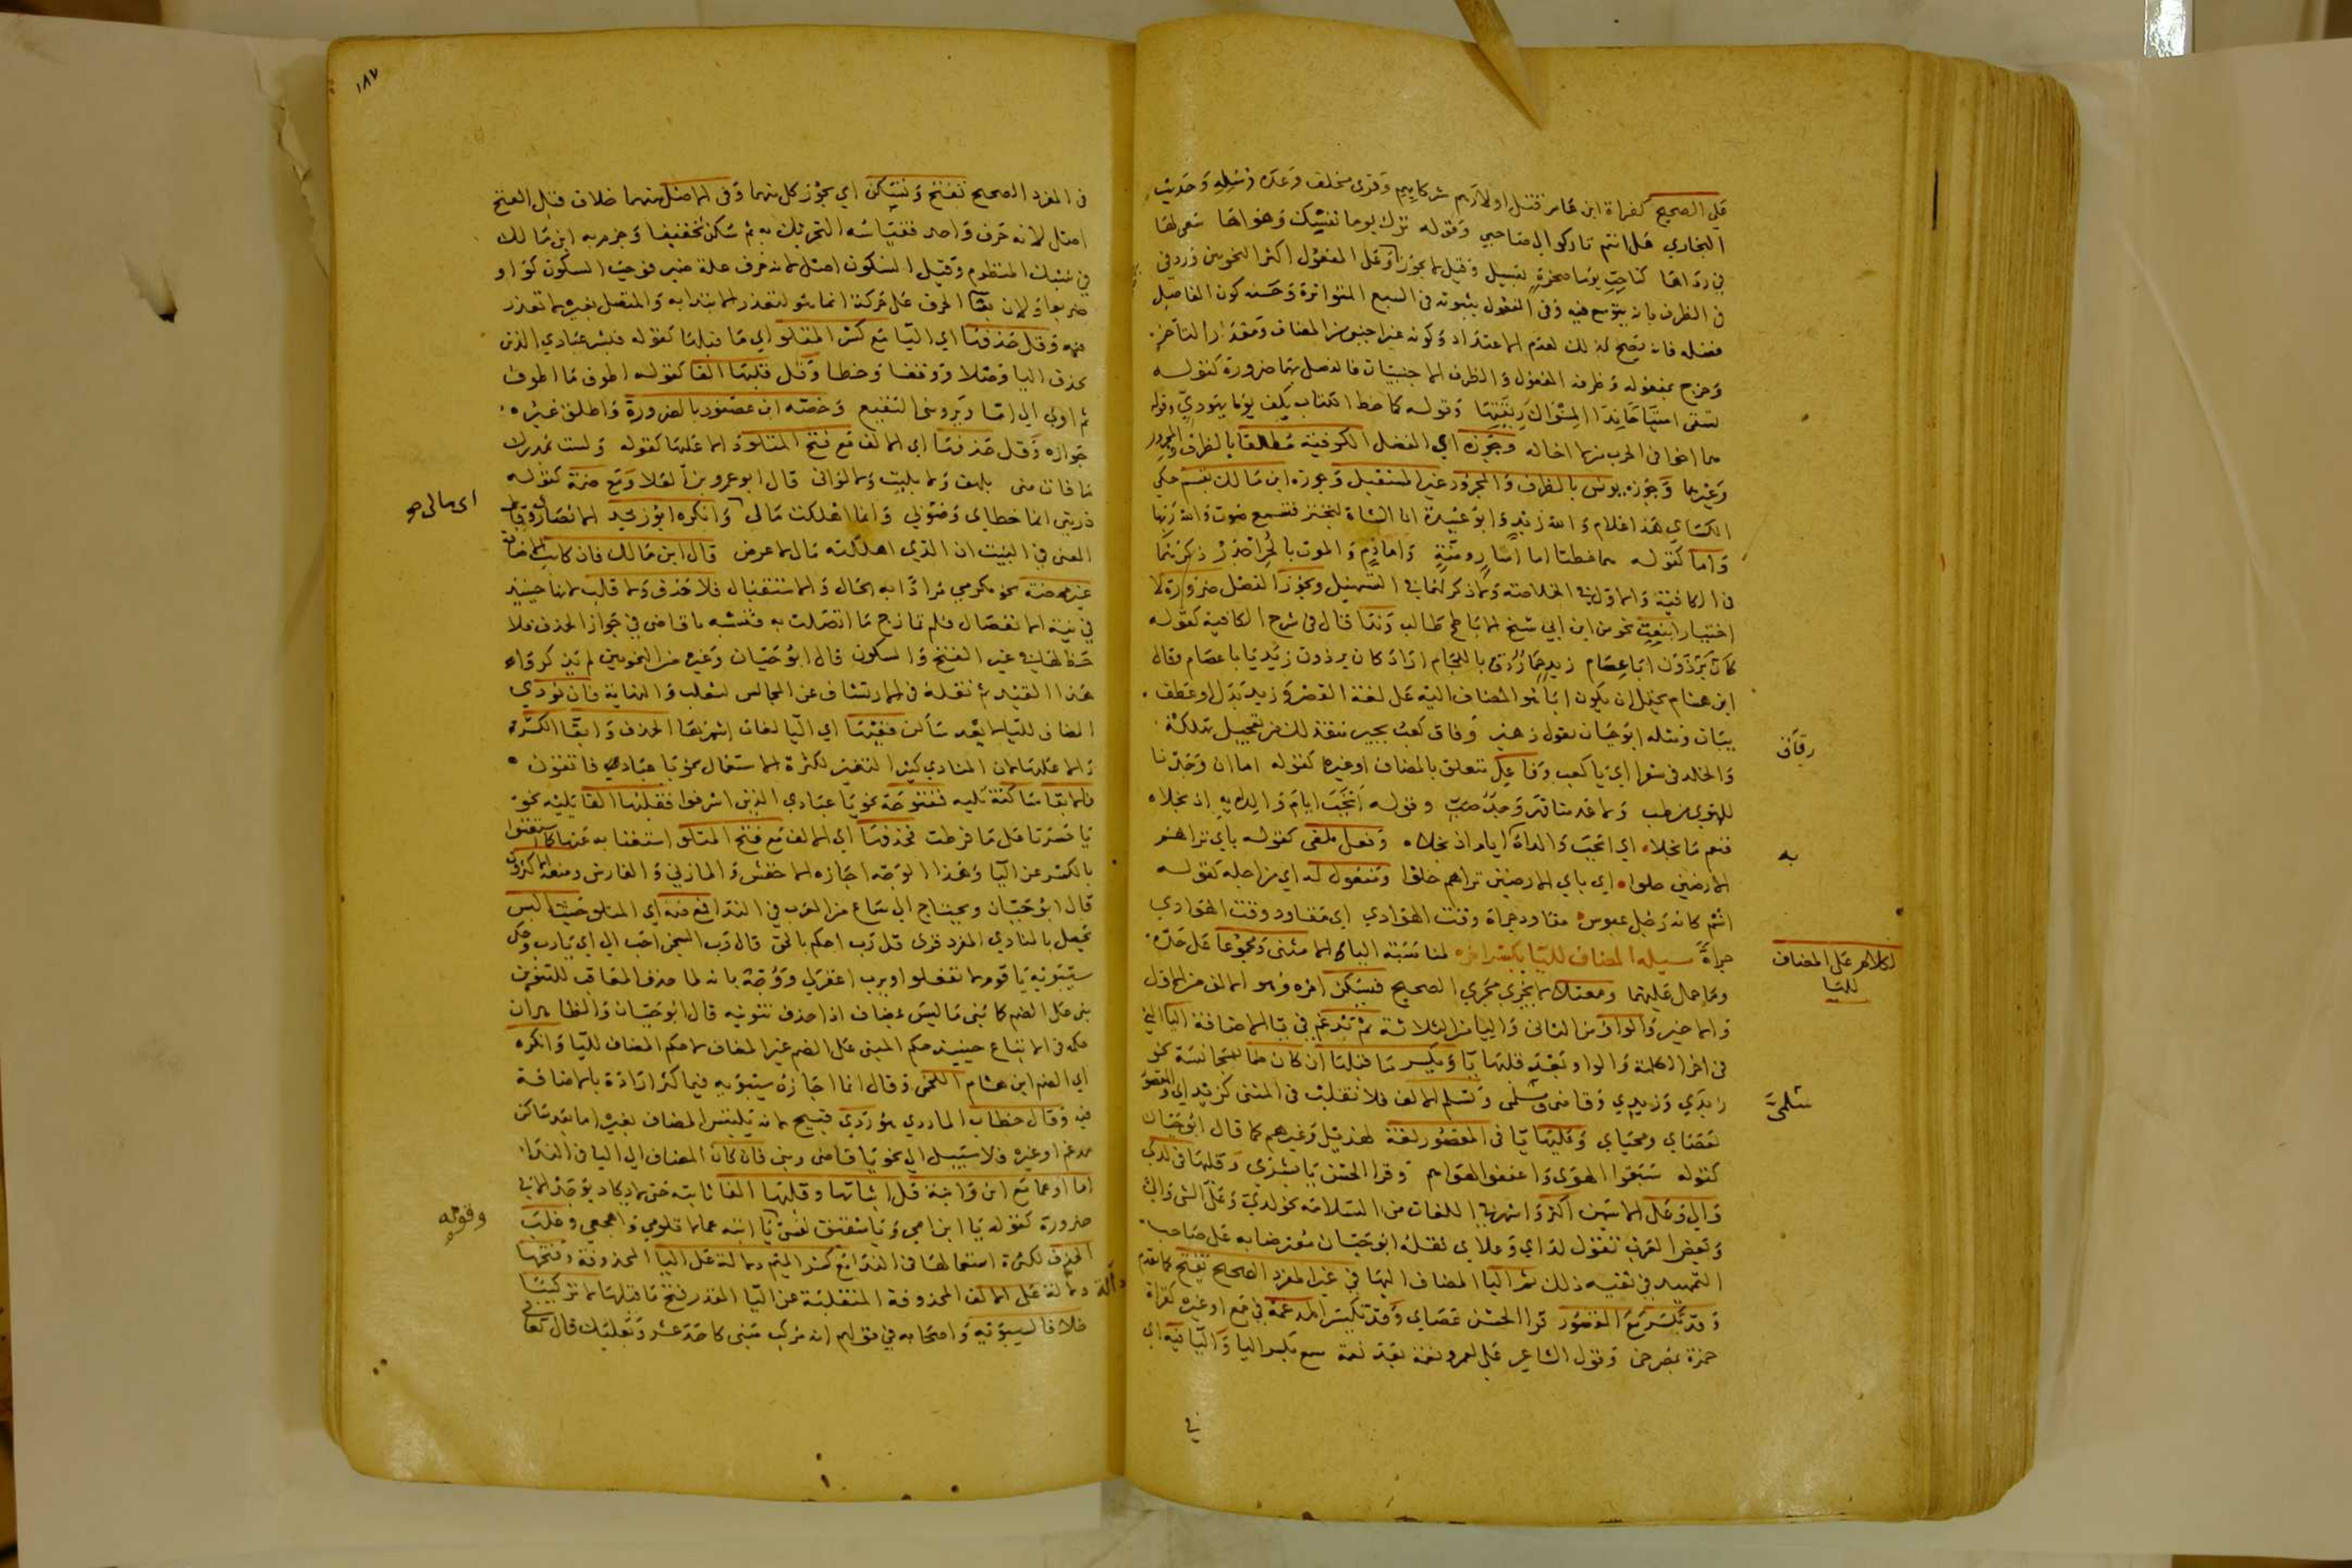 على الصحيح كقراءة ابن عامر قتل اولادهم شركايهم وقرئ مخلف وعده رسله وحديث
البخاري هل انتم تاركوا لي صاحبي وقوله ترك يوما نفسك وهواها سعي لها
في رداها كناحت يوما صخرة بعسيل وقيل لا يجوز وعلى المفعول اكثر النحويين ورد في
في الظرف بانه يتوسع فيه وفي المفعول بثبوته في السبع المتواترة وحسنه كون الفاصل
فضله فانه يصح كذلك لعدم الاعتداد وكونه غير اجنبي من المضاف ومقدر التاخر
وخرج بمفعوله وظرفه المفعول والظرف الاجنبيان فالفصل بهما ضرورة كقوله
تسقى امتياحا ندا المسواك ريقتها وقوله كما خط الكتاب بكف يوما يهودي وقوله
هما اخوا في الحرب من لا اخا له وجوزه اي الفصل الكوفية مطلقا بالظرف والمجرور
وغيرهما وجوزه يونس بالظرف والمجرور غير المستقبل وجوزه ابن مالك بقسم حكى
الكسائي هذا غلام والله زيد وابو عبيدة ان الشاة لتجتر فتسمع صوت والله ربها
واما كقوله هما خطتا اما اسار ومنة واما دم والموت بالحر اجدر ذكرهما
في الكافية والاول في الخلاصة وما ذكر لهما في التسهيل ويجوز الفصل ضرورة لا
اختيارا بنعت نحو من ابن ابي شيخ الاباطح طالب وندا قال في شرح الكافية كقوله
كان برذون ابا عصام زيد حمار دق باللجام اراد كان برذون زيد يا با عصام وقال
ابن هشام يحتمل ان يكون ابا هو المضاف اليه على لغة القصر وزيد بدل او عطف
بيان ومثله ابو حيان بقول زهير وفاق كعب بجير منقذ لك من تعجيل تهلكة
والخلد في سقر اي يا كعب وفاعل متعلق بالمضاف او غيره كقوله ما ان وجدنا
للهوى من طب ولا عدمنا قهر وجد صب وقوله انجب ايام والداه به اذ نجلاه
فنعم ما نجلاه اي انجب والداه ايام اذ نجلاه وفعل ملغى كقوله باي تراهم
الارضين حلوا اي باي الارضين تراهم حلوا ومفعول له اي من اجله كقوله
اشم كانه رجل عبوس معاود جراة وقت الهوادي اي معاود وقت الهوادي
جراة مسئلة المضاف لليا يكسر اخره لمناسبة اليا الا مثنى ومجموعا على حده
وما حمل عليهما ومعتلا لا يجري مجرى الصحيح فيسكن اخره وهو الالف من الاول
والاخير والواو من الثاني واليا من الثلاثة ثم تدغم في يا الاضافة اليا التي
في اخر الكلمة والواو بعد قلبها يا ويكسر ما قبلها ان كان ضما لتجانسه نحو
زيدي وزيدي وقاضي ومسلمي وتسلم الالف فلا تنقلب في المثنى كزيداي والمقصور
كعصاي ومحياي وقلبها يا في المقصور لغة لهذيل وغيرهم كما قال ابو حيان
كقوله سبقوا هوي واعنقوا لهواهم وقرا الحسن يا بشري وقلبها في لدى
والى وعلى الاسمين اكثر واشهر في اللغات من السلامة نحو لدي وعلي الشي والي
وبعض العرب تقول لداي وعلاي نقله ابو حيان معترضا به على صاحب
التمهيد في نفيه ذلك ثم اليا المضاف اليها في غير المفرد الصحيح تفتح كما تقدم
وقد تكسر مع المقصور قرا الحسن عصاي وقد تكسر المدغمة في جمع او غيره كقراة
حمزة بمصرخي وقول الشاعر علي لعمرو نعمة بعد نعمة سمع بكسر اليا واليا فيه اي
في
رقاق
به
الكلام على المضاف
لليا
مسلمي
١٨٧
في المفرد الصحيح تفتح وتسكن اي يجوز كل منهما وفي الاصل منهما خلاف قيل الفتح
اصل لانه حرف واحد فقياسه التحريك به ثم سكن تخفيفا وجزم به ابن مالك
في سبك المنظوم وقيل السكون اصل لانه حرف علة ضمير فوجب السكون كواو
ضربوا ولان بنا الحرف على حركة انما هو لتعذر الابتدا به والمتصل بغيره لا تعذر
فيه وقل حذفها اي اليا مع كسر المتلو اي ما قبلها كقوله فبشر عبادي الذين
بحذف اليا وصلا ووقفا وخطا وقل قلبها الفا كقوله اطوف ما اطوف
ثم اوي الى اما ويرويني النقيع وخصه ابن عصفور بالضرورة واطلق غيره
جوازه وقل حذفها اي الالف مع فتح المتلو دالا عليها كقوله ولست بمدرك
ما فات مني بلهف ولا بليت ولا لو اني قال ابو عمرو بن العلا ومع ضمة كقوله
ذريني انما خطاي وصوبي وانما اهلكت مال وانكره ابو زيد الانصاري وقال
المعنى في البيت ان الذي اهلكته مال لا عرض قال ابن مالك فان كانت الاضافة
غير محضة نحو مكرمي مرادا به الحال والاستقبال فلا حذف ولا قلب لانها حينيذ
في نية الانفصال فلم تمازج ما اتصلت به فتشبه يا قاضي في جواز الحذف فلا
حظ لها في غير الفتح والسكون قال ابو حيان وغيره من النحويين لم يذكروا
هذا القيد ثم نقله في الارتشاف عن المجالس لثعلب والنهاية فان نودي
المضاف لليا لا بعد ساكن ففيها اي اليا لغات اشهرها الحذف وابقا الكسرة
دالا عليها لان المنادى كثير التغير لكثرة الاستعمال نحو يا عباد فاتقون
فابقا ساكنة تليه فمفتوحة نحو يا عبادي الذين اسرفوا فقلبها الفا تليه نحو
يا حسرتا على ما فرطت فحذفها اي الالف مع فتح المتلو استغنا به عنها كما استغنوا
بالكسر عن اليا وهذا الوجه اجازه الاخفش والمازني والفارسي ومنعه الاكثرون
قال ابو حيان ويحتاج الى سماع من العرب في الندا فمع ضمه اي المتلو حيث لا لبس
يحصل بالمنادى المفرد قرئ قل رب احكم بالحق قال رب السجن احب الي اي يا رب وحكى
سيبويه يا قوم لا تفعلوا ويا رب اغفر لي ووجه بانه لما حذف المعاقب للتنوين
بني على الضم كما بني ما ليس بمضاف اذا حذف تنوينه قال ابو حيان والظاهر ان
حكمه في الاتباع حينيذ حكم المبني على الضم غير المضاف لا حكم المضاف لليا وانكره
اي الضم ابن هشام اللخمي وقال انما اجازه سيبويه فيما كثر ارادة الاضافة
فيه وقال خطاب الماردي هو ردي قبيح لانه يلبس المضاف بغيره اما بعد ساكن
مدغم او غيره فلا سبيل الى نحو يا قاضي وبني فان كان المضاف الى اليا في الندا
اما او عما مع ابن وابنة قل اثباتها وقلبها الفا ثابتة حتى لا يكاد يوجد الا في
ضرورة كقوله يا ابن امي ويا شقيق نفسي يا ابنة عما لا تلومي واهجعي وغلب
الحذف لكثرة استعمالها في الندا مع كسر الميم دلالة على اليا المحذوفة وفتحها
دلالة على الالف المحذوفة المنقلبة عن اليا المقدر فتح ما قبلها لا تركيبا
خلافا لسيبويه واصحابه في قولهم انه مركب مبني كاحد عشر وبعلبك قال تعالى
اي مالي صح
وقوله
دالة